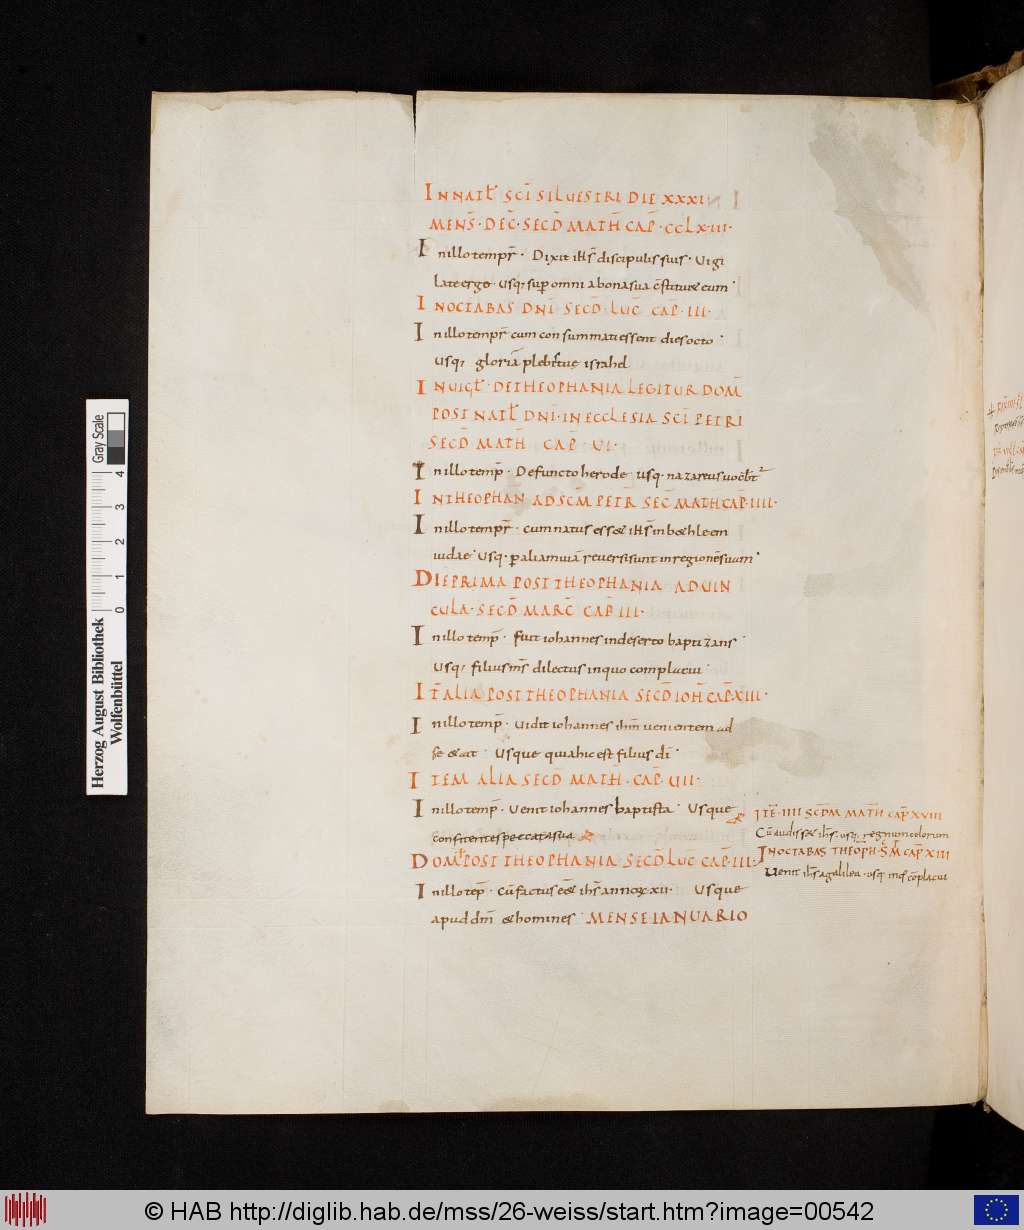 IN NAT̄ SCĪ SILUESTRI DIE XXXI
MENS̄· DEC̄· SECD̄ MATH̄ CAP̄· CCLXIII·
In illo tempr̄· Dixit ih̄s discipulis suis· Uigi
late ergo· usq; sup̄ omni a bona sua c̄stituæ eum·
IN OCTABAS DN̄I SECD̄ LUC̄ CAP̄·III·
In illo tempr̄ cum consummati essent dies octo·
Usq; gloriā plebis tuę israhel
IN UIGL̄· DE THEOPHANIA LEGITUR DOM̄
POST NAT̄L DN̄I· IN ECCLESIA SCĪ PETRI
SECD̄ MATH̄ CAP̄· UI·
In illo temp̄· Defuncto herode usq· nazareus uocabit̄
IN THEOPHAN AD SCM̄ PETR̄ SEC̄ MATH CAP̄·IIII·
In illo tempr̄· cum natus essæ ih̄s in bæhleem
iudae· Usq· p̄ aliam uiā reuersi sunt in regionē suam·
DIE PRIMA POST THEOPHANIA AD UIN
CULA· SECD̄ MARC̄ CAP̄ III·
In illo temp̄· fuit iohannes in deserto baptizans·
Usq; filius ms̄ dilectus in quo complacui·
IT̄ ALIA POST THEOPHANIA SECD̄ IOH̄ CAP̄·XIII·
In illo temp̄· Uidit iohannes ihm̄ uenientem ad
se & ait· Usque quia hic est filius dī·
ITEM ALIA SECD̄ MATH̄· CAP̄· UII·
In illo temp̄· Uenit iohannes baptista· Usque
confitentes peccata sua
DOM̄ POST THEOPHANIA· SECD̄ LUC̄ CAP̄·III·
In illo tep̄· cū factus eēt ih̄s annoꝝ xii· Usque
apud dm̄ & homines· MENSE IANUARIO
ITE᷒·IIII SCD̄M MATH̄ CAP̄ XVIII
Cū audissæ ih̄s· usq; regnum cęlorum
IN OCTABAS THEOPH·S̄ M̄ CAP̄ XIII
Uenit ih̄s a galilea· usq; in q̄ cōplacui
Herzog August Bibliothek
Wolfenbüttel
Gray Scale
0 1 2 3 4
© HAB http://diglib.hab.de/mss/26-weiss/start.htm?image=00542